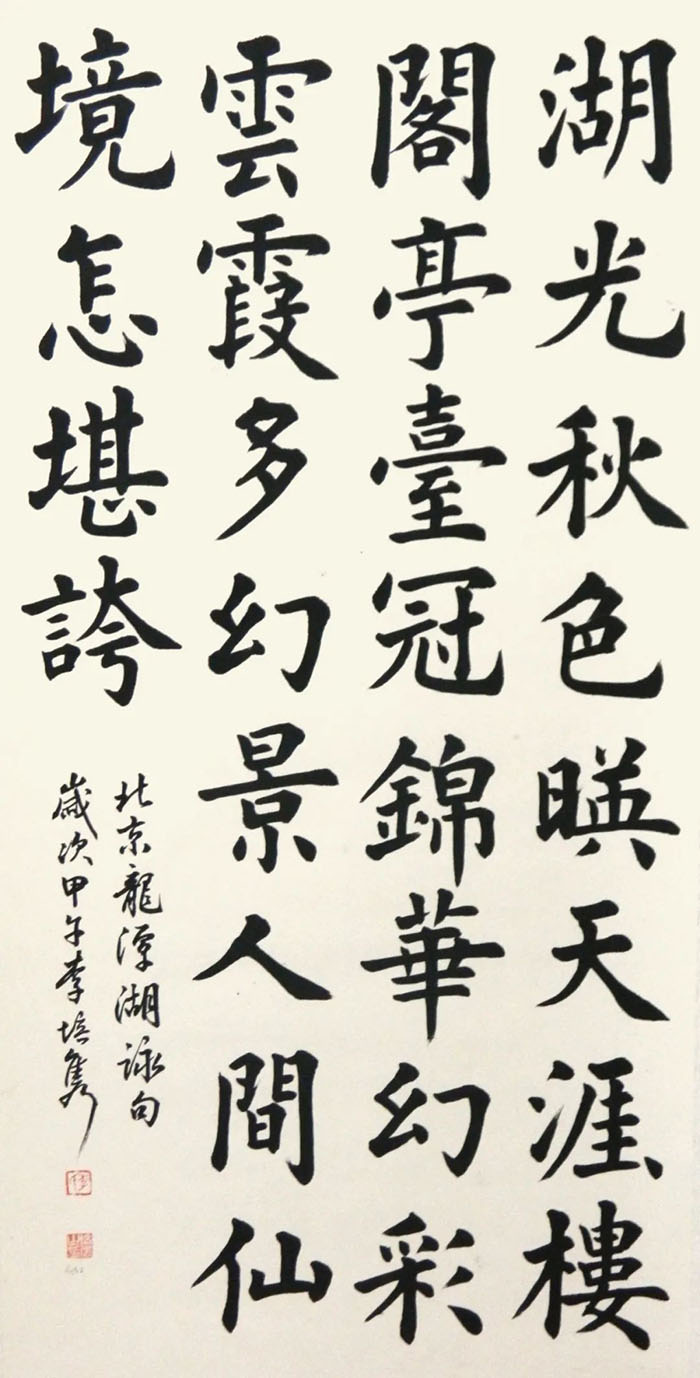 湖光秋色暎天涯樓
閣亭臺冠錦華幻彩
雲霞多幻景人間仙
境怎堪誇
北京龍潭湖詠句
歲次甲午李培雋